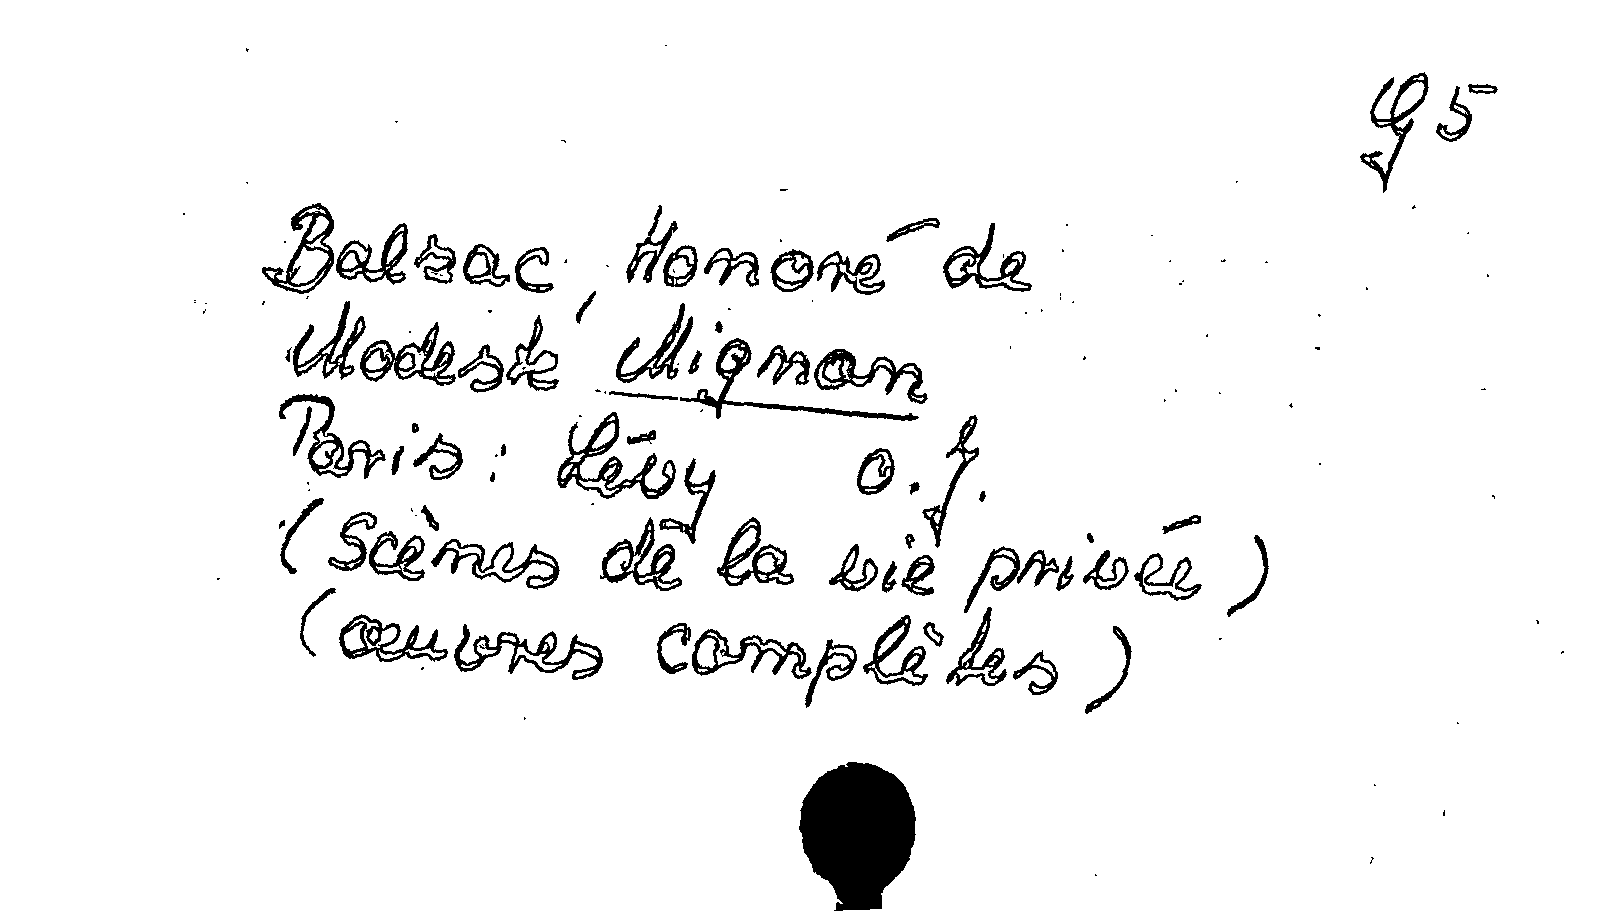 G 5
Balzac, Honoré de
Modeste Mignon
Paris: Lévy o. J.
(Scènes de la vie privée)
(œuvres complètes)